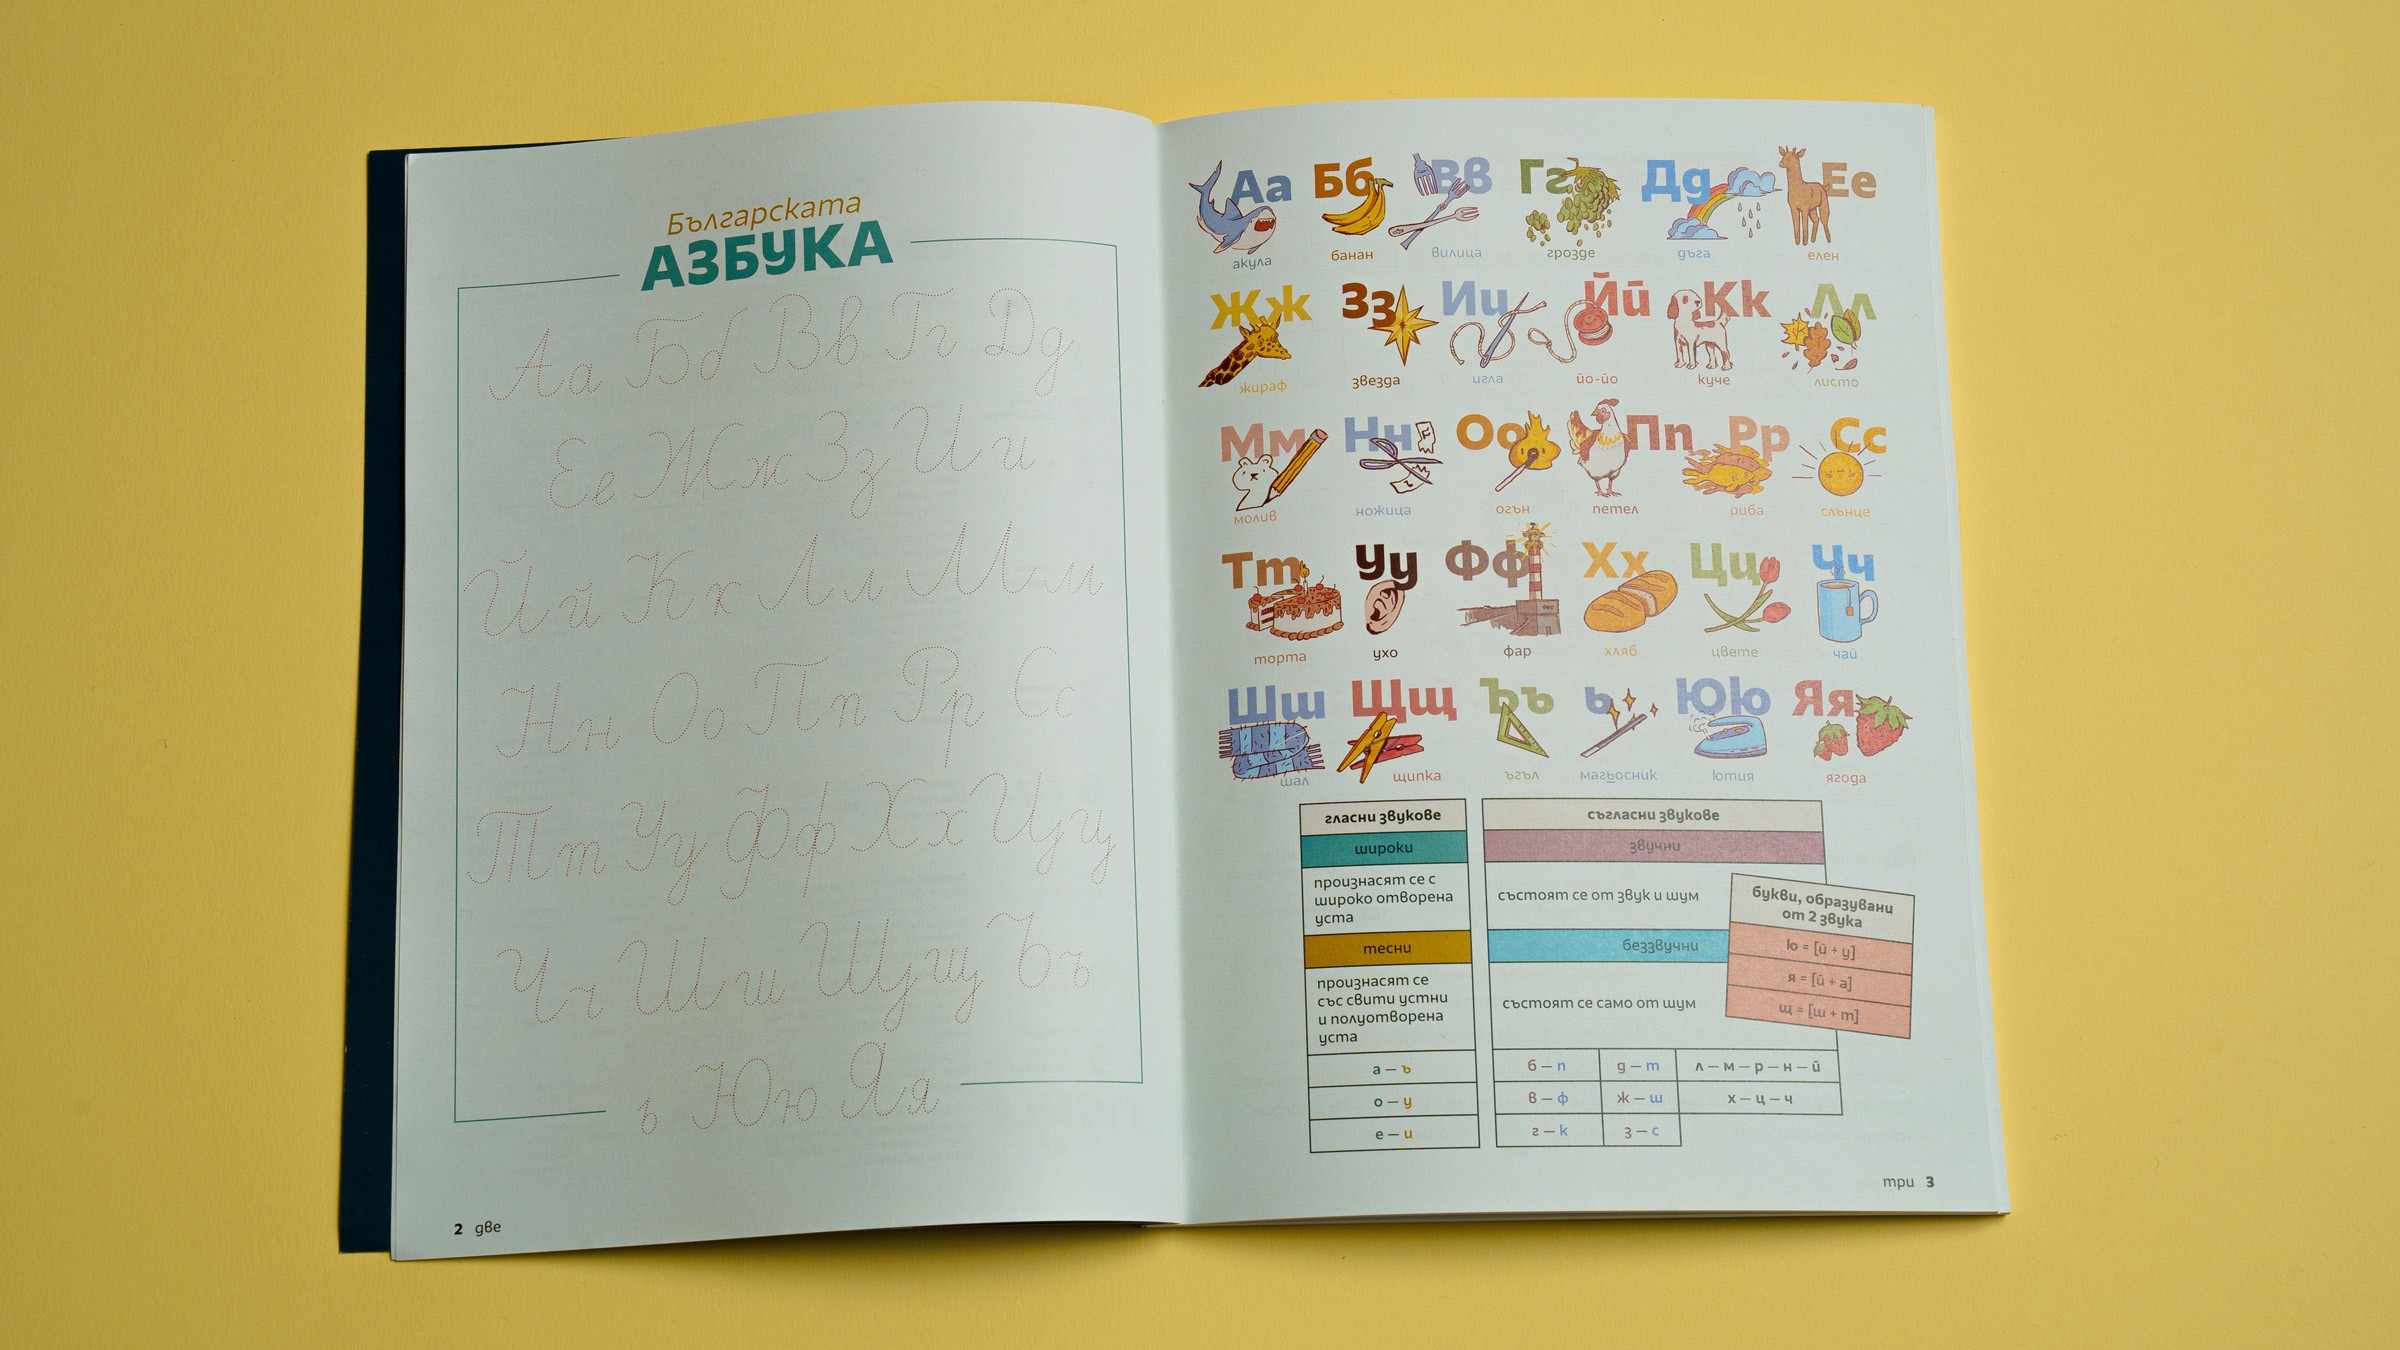 Българската
АЗБУКА
Аа Бб Вв Гг Дд
Ее Жж Зз Ии
Йй Кк Лл Мм
Нн Оо Пп Рр Сс
Тт Уу Фф Хх Цц
Чч Шш Щщ Ъъ
ь Юю Яя
2 две
Аа Бб Вв Гг Дд Ее
акула банан вилица грозде дъга елен
Жж Зз Ии Йй Кк Лл
жираф звезда игла йо-йо куче листо
Мм Нн Оо Пп Рр Сс
молив ножица огън петел риба слънце
Тт Уу Фф Хх Цц Чч
торта ухо фар хляб цвете чай
Шш Щщ Ъъ ь Юю Яя
шал щипка ъгъл магьосник ютия ягода
гласни звукове
широки
произнасят се с
широко отворена
уста
тесни
произнасят се
със свити устни
и полуотворена
уста
а – ъ
о – у
е – и
съгласни звукове
звучни
състоят се от звук и шум
беззвучни
състоят се само от шум
б – п д – т л – м – р – н – й
в – ф ж – ш х – ц – ч
г – к з – с
букви, образувани
от 2 звука
ю = [й + у]
я = [й + а]
щ = [ш + т]
три 3